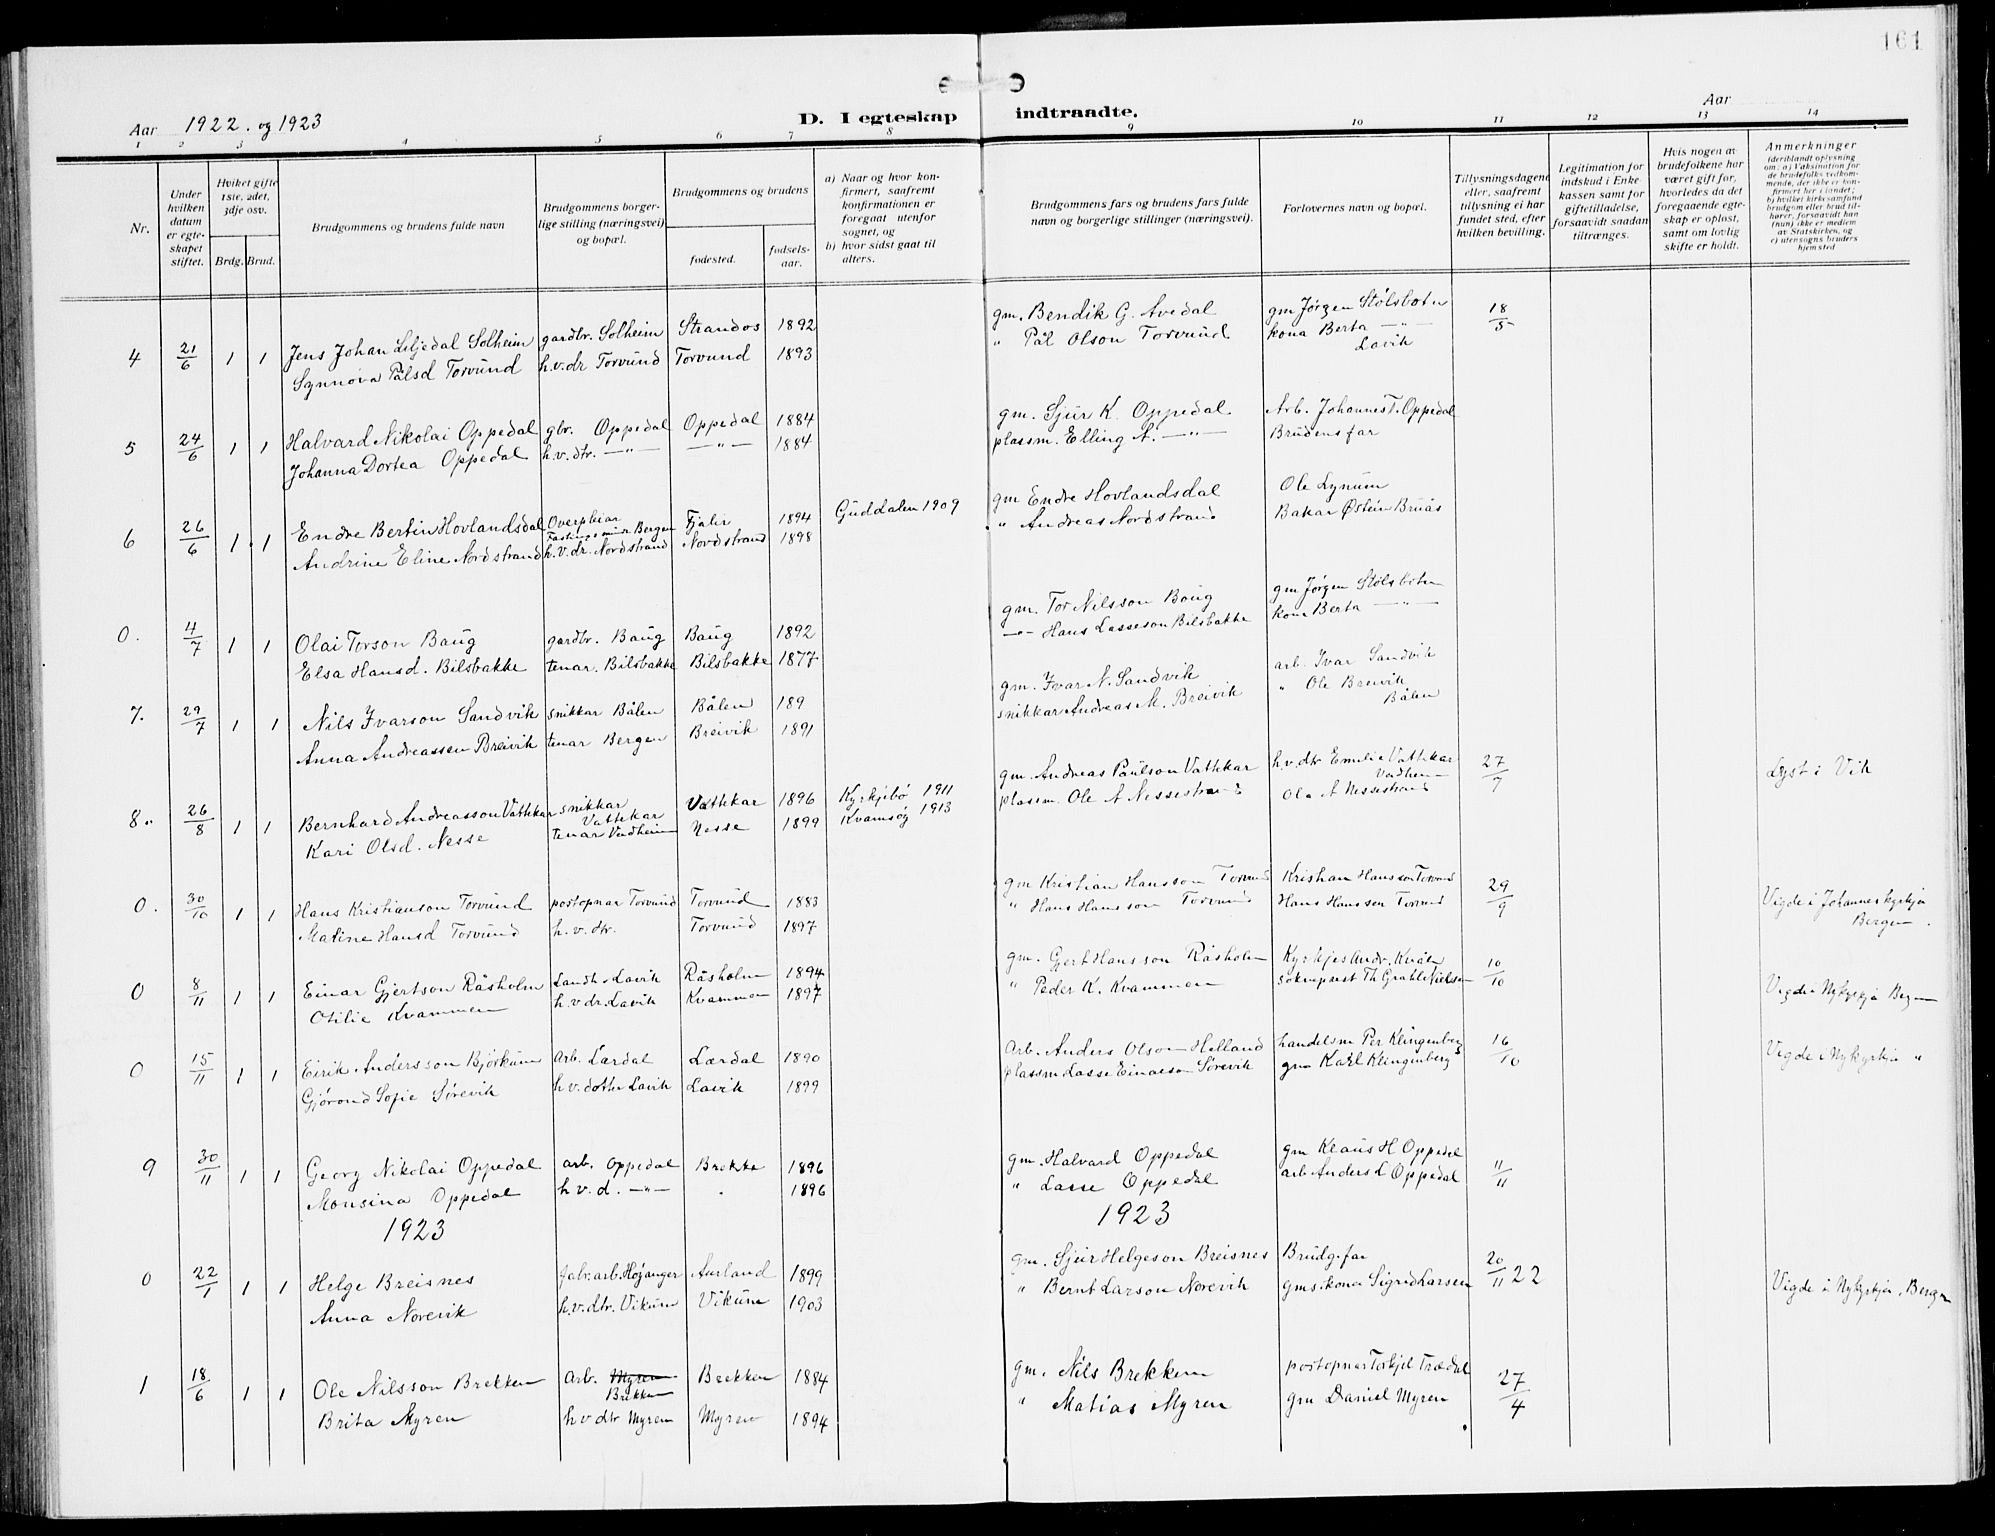 161
Aar 1922. og 1923
D. I egteskap indtraadte.
Aar
1 2 3 4 5 6 7 8 9 10 11 12 13 14
Nr.
Under hvilken datum er egteskapet stiftet.
Hviket gifte 1ste, 2det, 3dje osv.
Brdg. Brud.
Brudgommens og brudens fulde navn
Brudgommens borgerlige stilling (næringsvei) og bopæl.
Brudgommens og brudens
fødested.
fødselsaar.
a) Naar og hvor konfirmert, saafremt konfirmationen er foregaat utenfor sognet, og
b) hvor sidst gaat til alters.
Brudgommens fars og brudens fars fulde navn og borgerlige stillinger (næringsvei).
Forlovernes navn og bopæl.
Tillysningsdagene eller, saafremt tillysning ei har fundet sted, efter hvilken bevilling.
Legitimation for indskud i Enkekassen samt for giftetilladelse, forsaavidt saadan tiltrænges.
Hvis nogen av brudefolkene har været gift før, hvorledes da det foregaaende egteskap er opløst, samt om lovlig skifte er holdt.
Anmerkninger
(deriblandt oplysning om: a) Vaksination for de brudefolks vedkommende, der ikke er konfirmert her i landet; b) hvilket kirkesamfund brudgom eller brud tilhører, forsaavidt han (hun) ikke er medlem av Statskirken, og c) utensogns bruders hjemsted
4 21/6 1 1 Jens Johan Liljedal Solheim gardbr. Solheim Strandos 1892 gm. Bendik G. Avedal gm Jørgen Stølsboten 18/5
Synnøva Pålsd Torvund h.v.dr Torvund Torvund 1893 " Pål Olson Torvund kona Berta —"—
Lavik
5 24/6 1 1 Halvard Nikolai Oppedal gbr. Oppedal Oppedal 1884 gm. Sjur K. Oppedal Arb. Johannes T. Oppedal
Johanna Dortea Oppedal h.v.dtr. —"— —"— 1884 plassm. Elling A. —"— Brudens far
6 26/6 1 1 Endre Bertin Hovlandsdal Fjalir 1894 Guddalen 1909 gm Endre Hovlandsdal Ole Lynum
Bergen
Andrine Eline Nordstrand h.v.dr. Nordstrand Nordstrand 1898 " Andreas Nordstrand Bakar Østein Bruås
0. 4/7 1 1 Olai Torson Baug gardbr. Baug Baug 1892 gm. Tor Nilsson Baug gm Jørgen Stølsboten
Elsa Hansd. Bilsbakke tenar. Bilsbakke Bilsbakke 1877 —"— Hans Lasseson Bilsbakke kona Berta —"—
7. 29/7 1 1 Nils Ivarson Sandvik snikkar Bålen Bålen 189 gm. Ivar N. Sandvik arb. Ivar Sandvik
Anna Andreassen Breivik tenar Bergen Breivik 1891 snikkar Andreas M. Breivik " Ole Breivik
Bålen
8. 26/8 1 1 Bernhard Andreasson Vattekar snikkar Vattekar Vattekar 1896 Kyrkjebø 1911 gm. Andreas Paulson Vattekar h.v.dtr Emilie Vattekar 27/7 Lyst i Vik
Vadheim
Kari Olsd. Nesse tenar Vadheim Nesse 1899 Kvamsøy 1913 plassm. Ole A Nessestrand Ole A Nessestrand
0. 30/10 1 1 Hans Kristianson Torvund postopnar Torvund Torvund 1883 gm Kristian Hansson Torvund Kristian Hansson Torvund 29/9 Vigde i Johanneskyrkja
Matine Hansd Torvund h.v.dtr. Torvund 1897 " Hans Hansson Torvund Hans Hansson Torvund Bergen.
0 8/11 1 1 Einar Gjertson Råsholm Landh. Lavik Råsholm 1894 gm. Gjert Hansson Råsholm Kyrkjes Andr. Kvåle 10/10 Vigde i Nykyrkja Bergen
Otilie Kvammen h.v.dr. Lavik Kvammen 1897 " Peder K. Kvammen sokneprest Th Grahl Nielsen
0 15/11 1 1 Eirik Andersson Bjørkum Arb. Lærdal Lærdal 1890 Arb. Anders Olson Helland handelsm Per Klingenberg 16/10 Vigde i Nykyrkja "
Gjørond Sofie Sørevik h.v.dotter Lavik Lavik 1899 plassm Lasse Einarson Sørevik gm Karl Klingenberg
9 30/11 1 1 Georg Nikolai Oppedal arb. Oppedal Brekke 1896 gm. Halvard Oppedal gm Klaus H Oppedal 11/11
Monsina Oppedal h.v.d. —"— 1896 " Lasse Oppedal arb Anders L Oppedal
1923 1923
0 22/1 1 1 Helge Breisnes fabr.arb. Høyanger Aurland 1899 gm. Sjur Helgeson Breisnes Brudg. far 20/11 22 Vigde i Nykyrkja, Bergen
Anna Norevik h.v.dtr. Vikum Vikum 1903 " Bernt Larson Norevik gms. kona Sigrid Larsen
1 18/6 1 1 Ole Nilsson Brekken Arb. Myren Brekken Brekken 1884 gm. Nils Brekken postopnar Torkjel Trædal 27/4
Brita Myren h.v.dtr Myren Myren 1894 " Matias Myren gm Daniel Myren